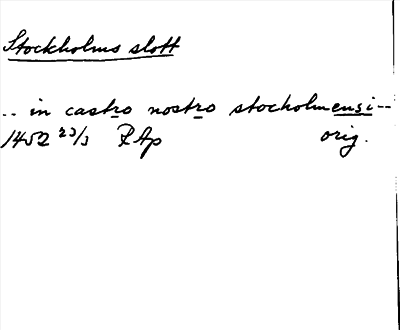 Stockholms slott
-- in castro nostro stocholmensi--
1452 23/3 RAp orig.